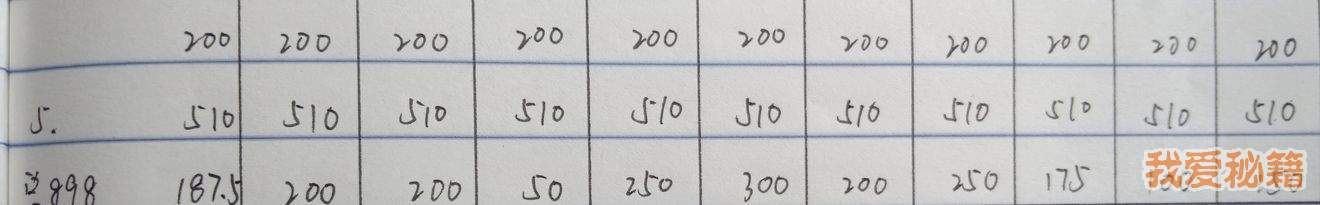 200 200 200 200 200 200 200 200 200 200 200
5. 510 510 510 510 510 510 510 510 510 510 510
898 187.5 200 200 50 250 300 200 250 175
我爱秘籍